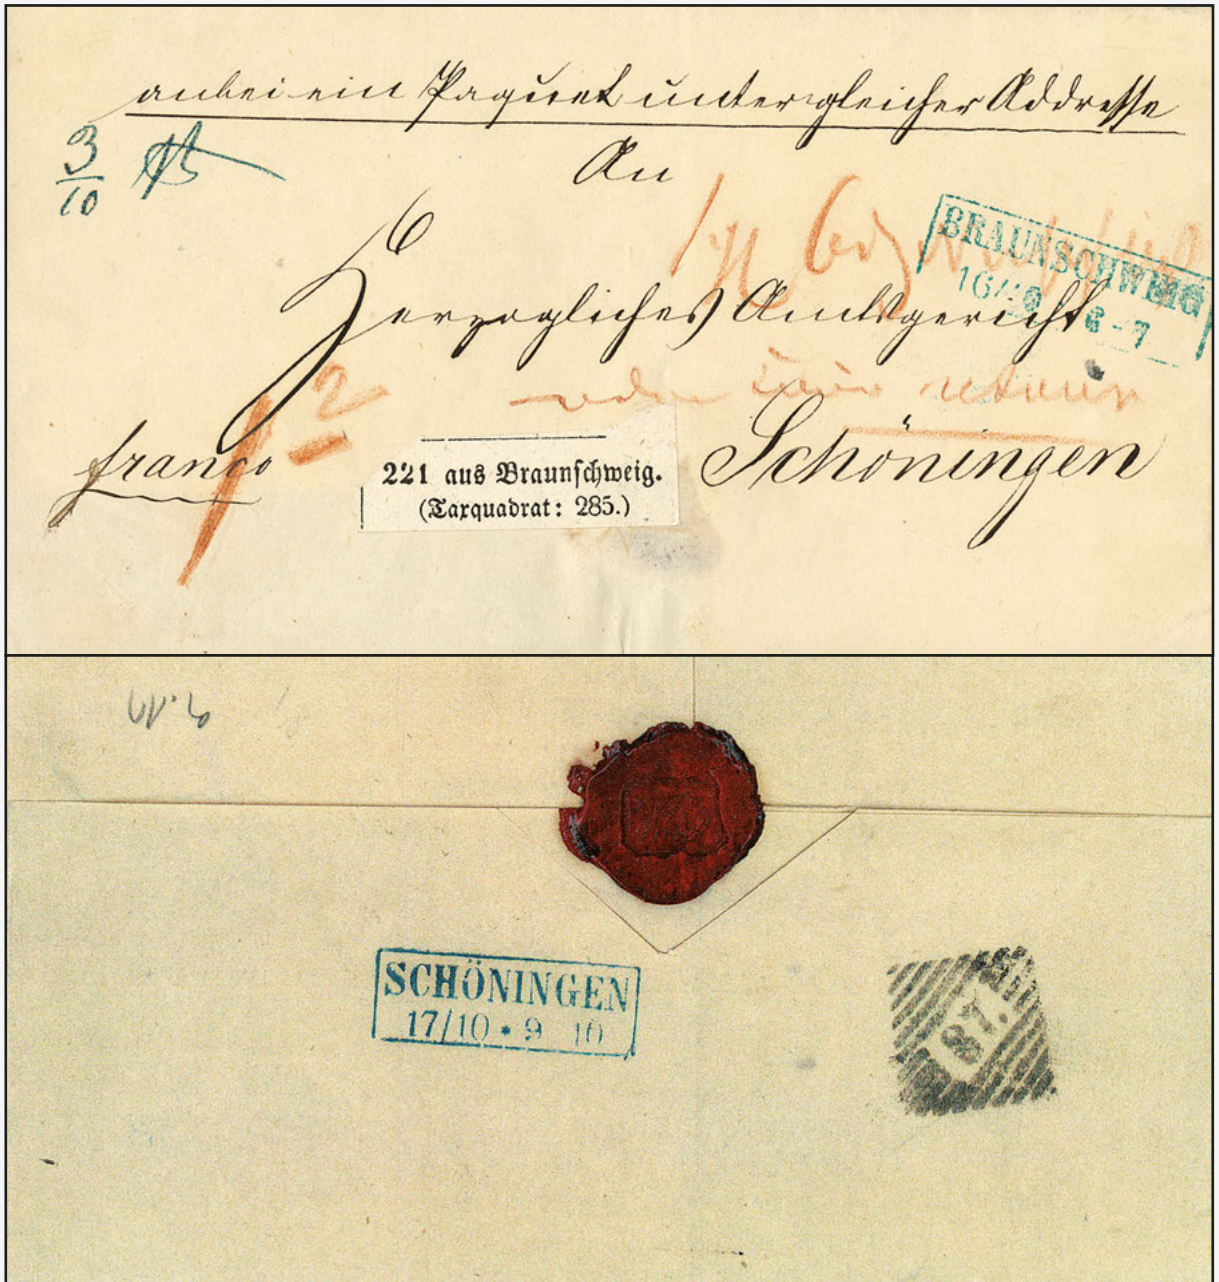 anbei ein Paquet unter gleicher Addresse
3/10 ℔
An
BRAUNSCHWEIG
16/10 6-7
Herzogliches Amtsgericht
2
franco
Schöningen
221 aus Braunschweig.
(Taxquadrat: 285.)
SCHÖNINGEN
17/10 * 9 10